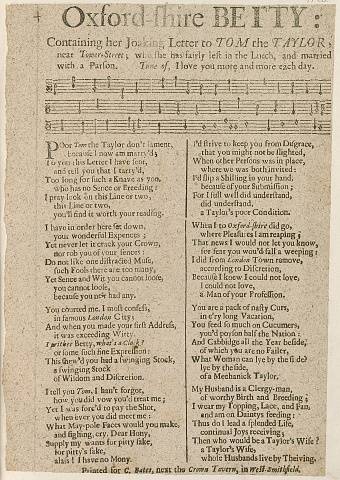 Oxford-shire BETTY:
Containing her Joaking Letter to TOM the TAYLOR,
near Tower-Street, who she has fairly left in the Lurch, and married
with a Parson. Tune of, I love you more and more each day.
POor Tom the Taylor don't lament,
because I now am marry'd;
To you this Letter I have sent,
and tell you that I tarry'd,
Too long for such a Knave as you,
who has no Sence or Breeding:
I pray look on this Line or two,
this Line or two,
you'll find it worth your reading.
I have in order here set down,
your wonderful Expences;
Yet never let it crack your Crown,
nor rob you of your Sences:
Do not like one distracted Muse,
such Fools there are too many,
Yet Sence and Wit you cannot loose,
you cannot loose,
because you ne'r had any.
You courted me, I must confess,
in famous London City;
And when you made your first Address,
it was exceeding Witty.
I wither Betty, what's a Clock?
or some such fine Expression:
This shew'd you had a swinging Stock,
a swinging Stock
of Wisdom and Discretion.
I tell you Tom, I han't forgot,
how you did vow you'd treat me;
Yet I was forc'd to pay the Shot,
when ever you did meet me:
What May-pole Faces would you make,
and sighing, cry, Dear Honey,
Supply my wants for pitty sake,
for pitty's sake,
alass! I have no Mony.
I'd strive to keep you from Disgrace,
that you might not be slighted,
When other Persons was in place,
where we was both invited:
I'd slip a Shilling in your hand,
because of your Submission;
For I full well did understand,
did understand,
a Taylor's poor Condition.
When I to Oxford-shire did go,
where Pleasures I am reaping;
That news I would not let you know,
for fear you won'd fall a weeping:
I did from London Town remove,
according to Discretion,
Because I knew I could not love,
I could not love,
a Man of your Profession.
You are a pack of nasty Curs,
in e'ry long Vacation,
You feed so much on Cucumers,
you'd poyson half the Nation:
And Cabbidge all the Year beside,
of which you are no Failer,
What Woman can lye by the side?
lye by the side,
of a Mechanick Taylor.
My Husband is a Clergy-man,
of worthy Birth and Breeding;
I wear my Topping, Lace, and Fan,
and am on Dainties feeding:
Thus do I lead a splended Life,
continual Joys receiving;
Then who would be a Taylor's Wife?
a Taylor's Wife,
whose Husbands live by Theiving.
Printed for C. Bates, next the Crown Tavern, in West-Smithfield.